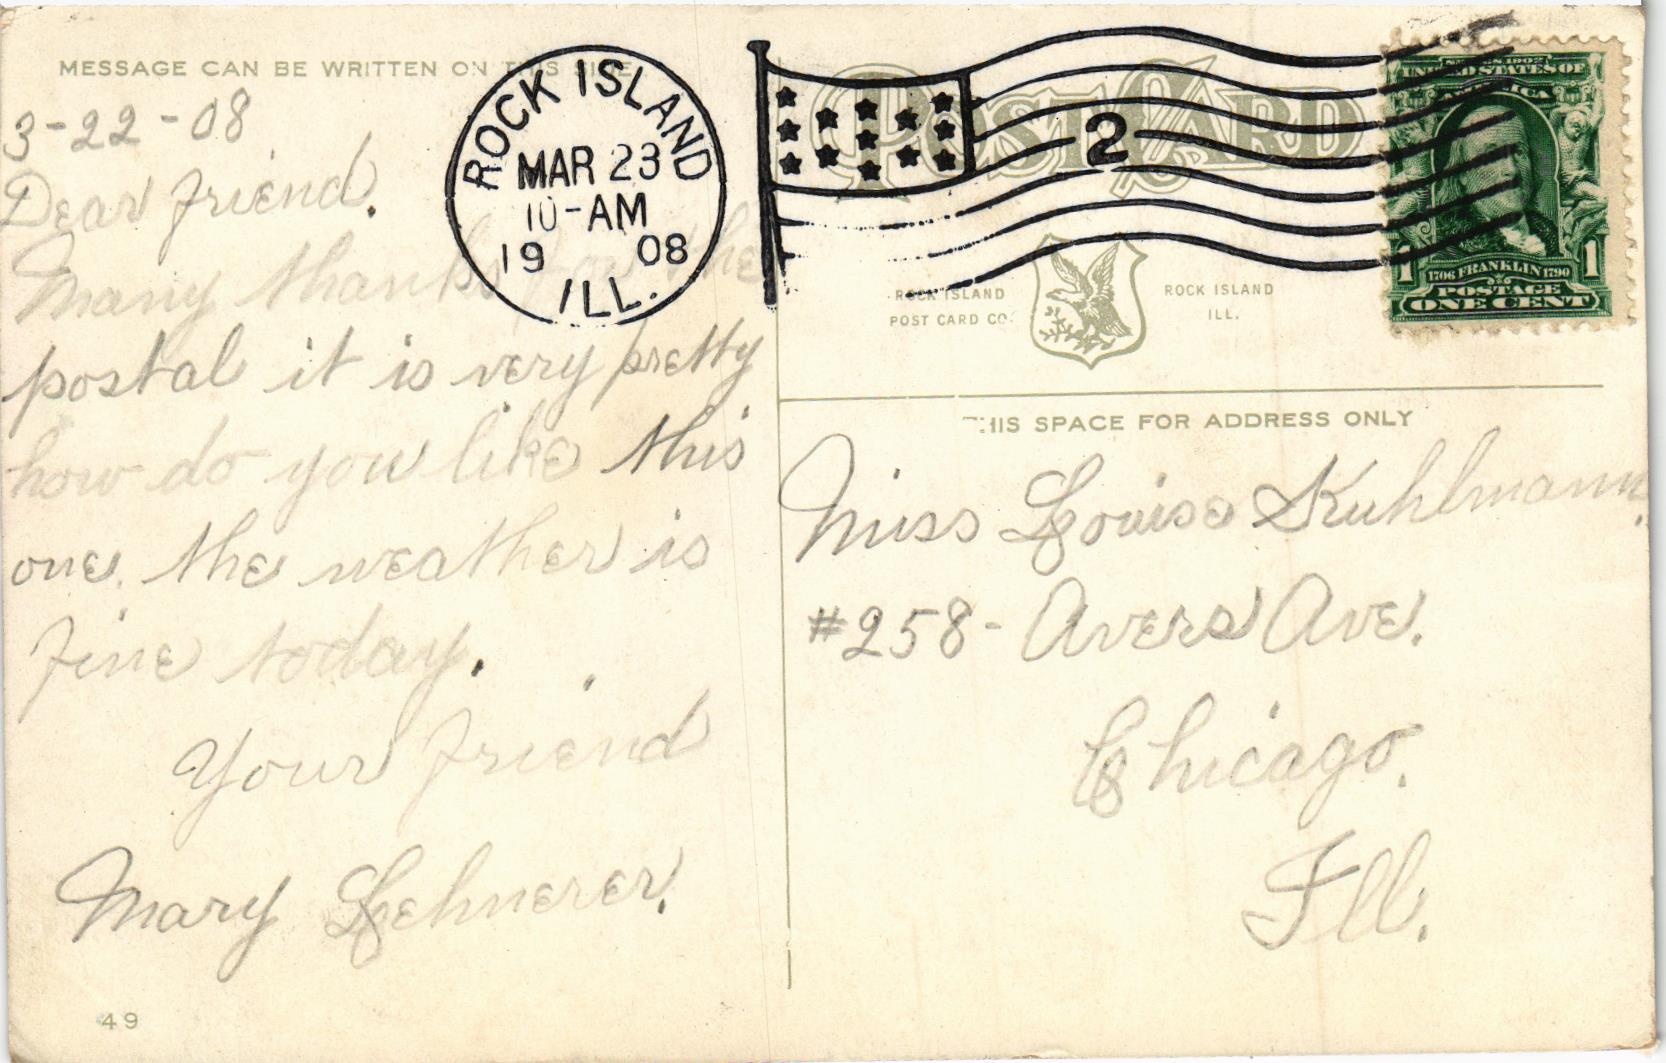 MESSAGE CAN BE WRITTEN ON THIS SIDE
3-22-08
Dear friend.
Many thanks for the
postal it is very pretty
how do you like this
one. the weather is
fine today.
Your friend
Mary Lehnerer.
49
ROCK ISLAND
MAR 23
10-AM
1908
ILL.
2
POST CARD
SERIES 1902
UNITED STATES OF
AMERICA
1 1706 FRANKLIN 1790 1
POSTAGE
ONE CENT
ROCK ISLAND
POST CARD CO.
ROCK ISLAND
ILL.
THIS SPACE FOR ADDRESS ONLY
Miss Louise Kuhlmann.
#258- Avers Ave.
Chicago.
Ill.